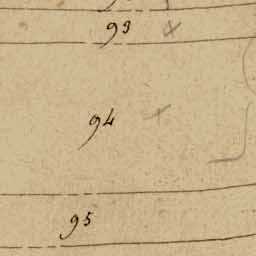 93
94
95